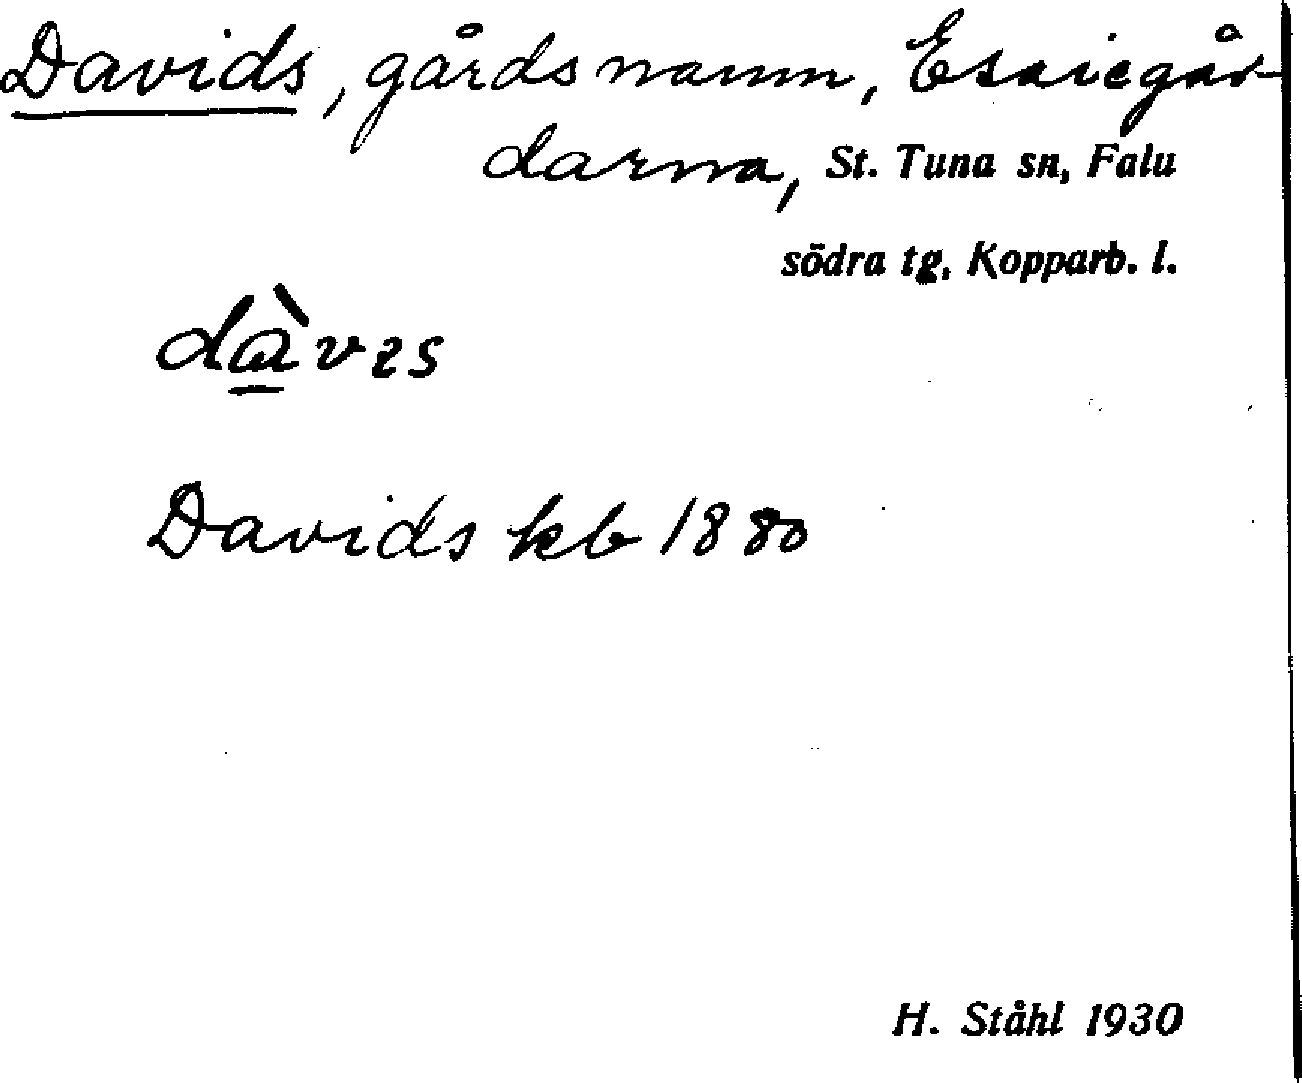 Davids, gårdsnamn, Esaiegår-
darna, St. Tuna sn, Falu
södra tg, Kopparb. l.
dàves
Davids kb 1880
H. Ståhl 1930